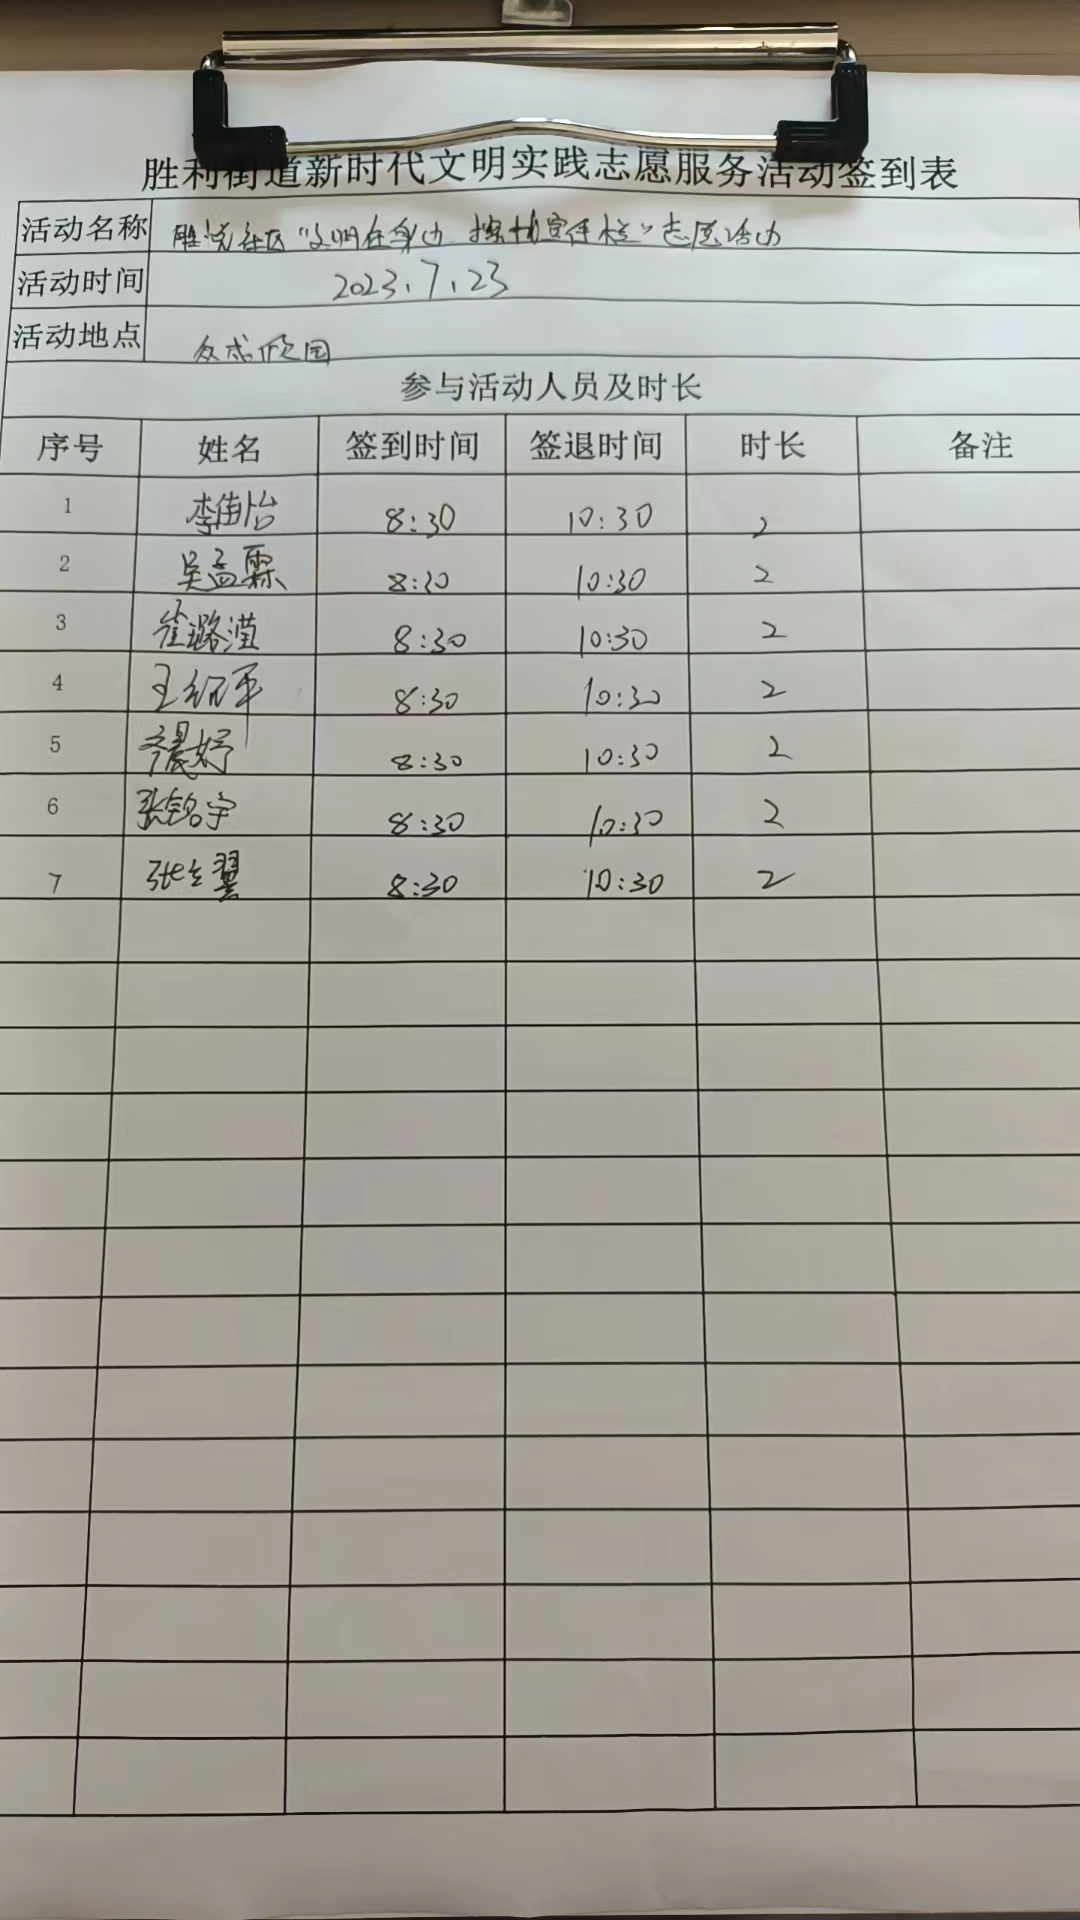 胜利街道新时代文明实践志愿服务活动签到表
活动名称 社区“文明在身边 擦拭宣传栏”志愿活动
活动时间 2023.7.23
活动地点
参与活动人员及时长
序号 姓名 签到时间 签退时间 时长 备注
1 李 怡 8:30 10:30 2
2 吴孟霖 8:30 10:30 2
3 崔璐滢 8:30 10:30 2
4 王 平 8:30 10:30 2
5 齐晨妤 8:30 10:30 2
6 张铭宇 8:30 10:30 2
7 张 翼 8:30 10:30 2